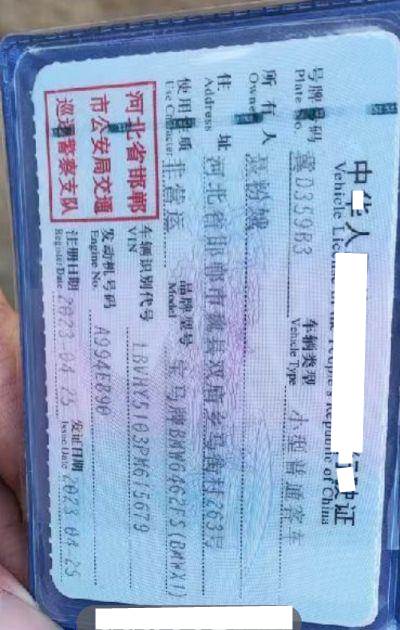 中华人 行 证
Vehicle License of the People's Republic of China
号牌号码 冀D359B3 车辆类型 小型普通客车
Plate No. Vehicle Type
所有人
Owner
住址 河北省邯郸市魏县双庙乡 街村263号
Address
使用性质 非营运 品牌型号 宝马牌BMW6462FS(BMWX1)
Use Character Model
河北省邯郸
市公安局交通
巡逻警察支队
车辆识别代号 LBVHY5103PM615679
VIN
发动机号码 A994E890
Engine No.
注册日期 2023-04-25 发证日期 2023-04-25
Register Date Issue Date